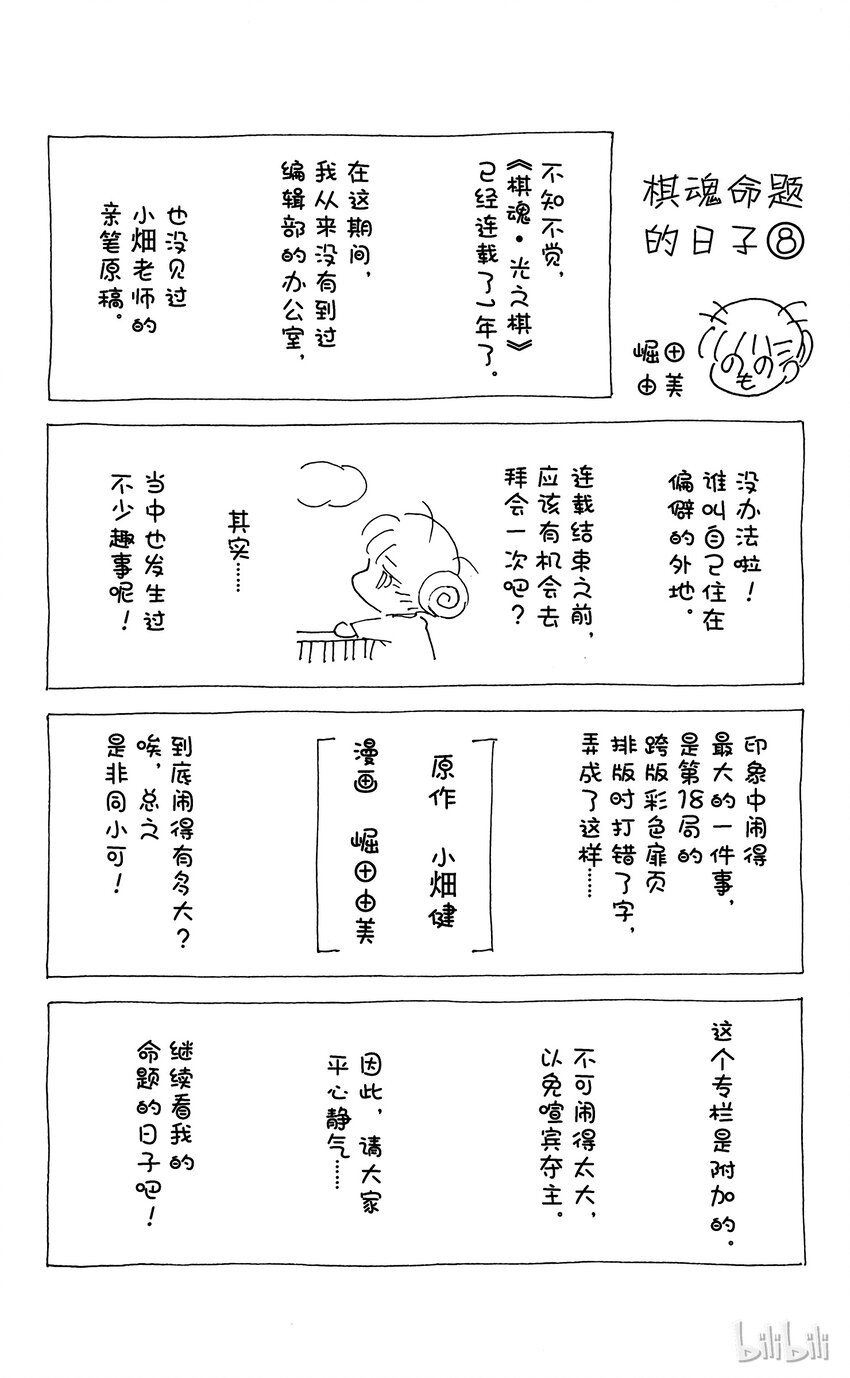 棋魂命题
的日子⑧
崛田
由美
不知不觉，
《棋魂·光之棋》
已经连载了一年了。
在这期间，
我从来没有到过
编辑部的办公室，
也没见过
小畑老师的
亲笔原稿。
没办法啦！
谁叫自己住在
偏僻的外地。
连载结束之前，
应该有机会去
拜会一次吧？
其实……
当中也发生过
不少趣事呢！
印象中闹得
最大的一件事，
是第18局的
跨版彩色扉页
排版时打错了字，
弄成了这样……
原作 小畑健
漫画 崛田由美
到底闹得有多大？
唉，总之
是非同小可！
这个专栏是附加的。
不可闹得太大，
以免喧宾夺主。
因此，请大家
平心静气……
继续看我的
命题的日子吧！
bilibili